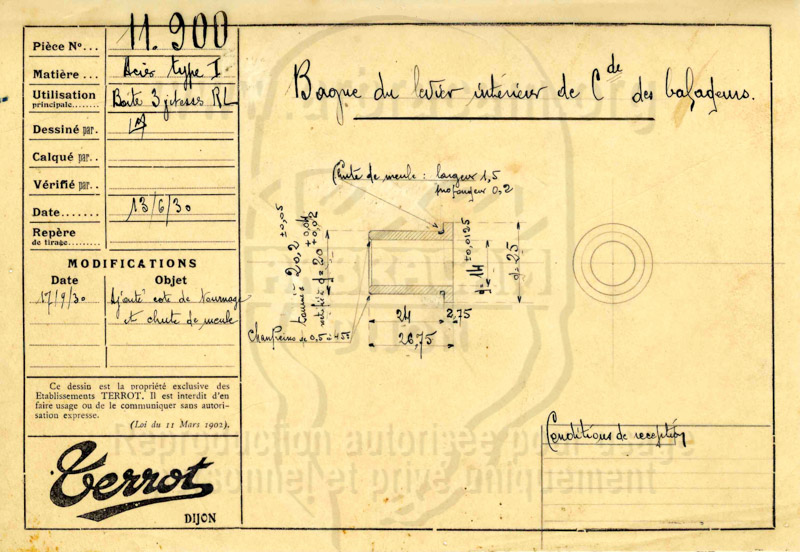 Pièce N°... 11.900
Matière... Acier type I
Utilisation
principale........ Boite 3 vitesses RL
Dessiné par.
Calqué par..
Vérifié par..
Date....... 13/6/30
Repère
de tirage.......
MODIFICATIONS
Date Objet
17/9/30 Ajouté cote de tournage
et chute de meule
Ce dessin est la propriété exclusive des
Etablissements TERROT. Il est interdit d'en
faire usage ou de le communiquer sans autori-
sation expresse.
(Loi du 11 Mars 1902).
Terrot
DIJON
Bague du levier intérieur de Cde des baladeurs.
Chute de meule : largeur 1,5
profondeur 0,2
tournée 20,2 ±0,05
rectifié d=20 +0,04 +0,02
14 ±0,0125
d=25
24 2,75
26,75
Chanfreins de 0,5 à 45°
Conditions de reception
Reproduction autorisée pour usage
personnel et privé uniquement